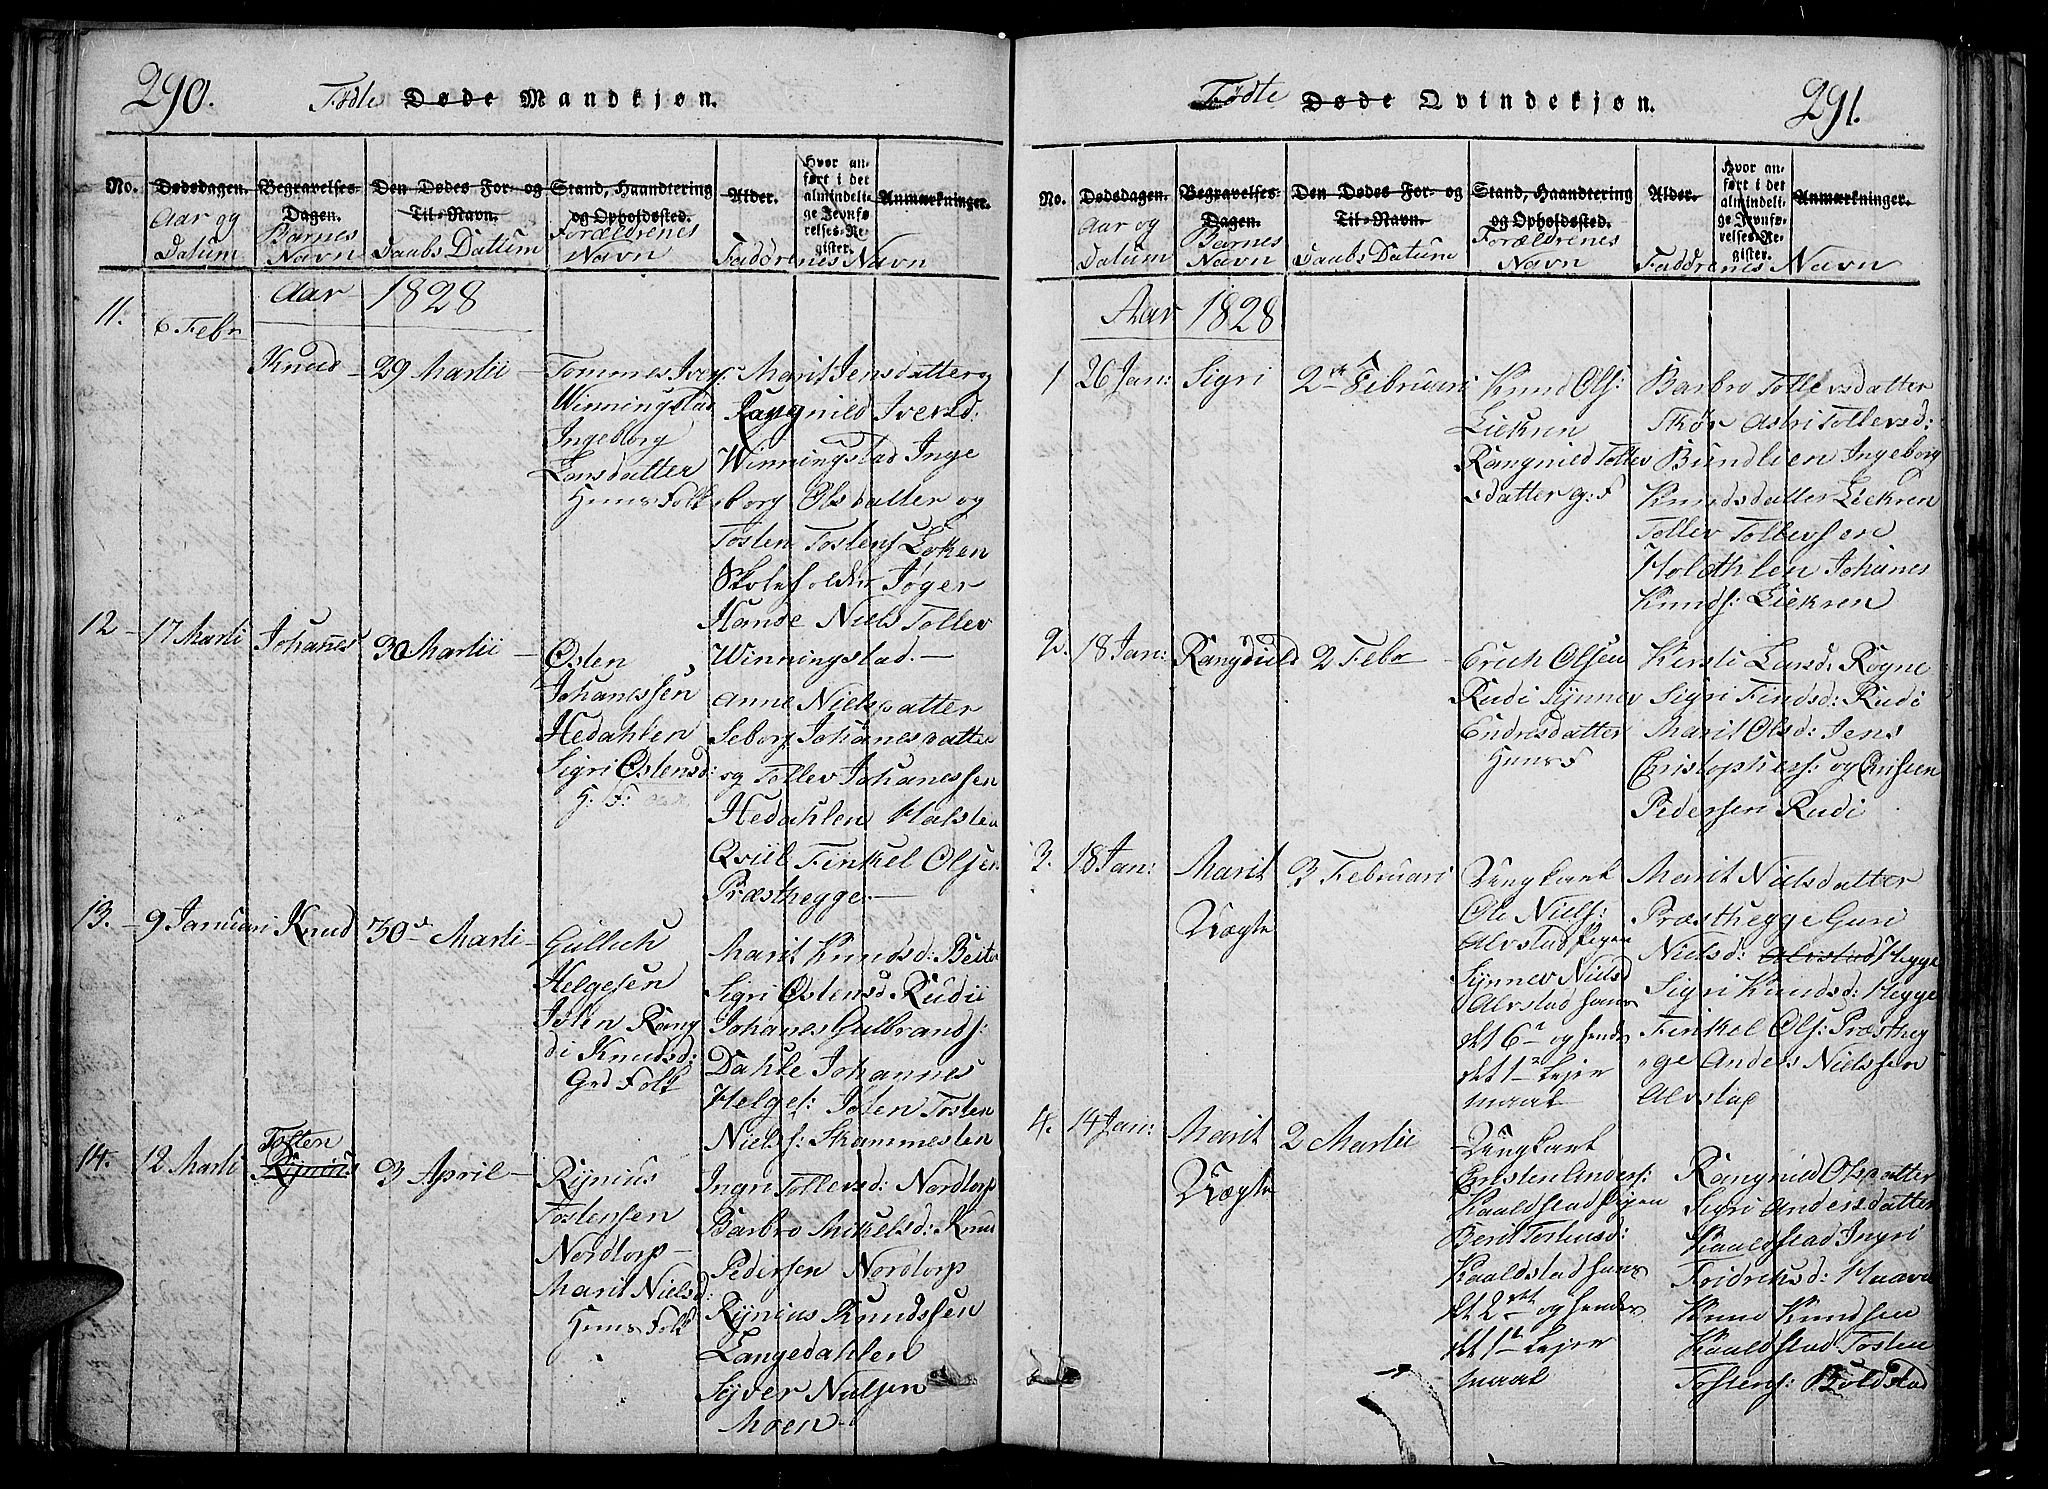 290.
Fødte Døde Mandkjøn.
No.
Dødsdagen.
Aar og
Datum
Begravelses-
Dagen.
Barnes
Navn
Den Dødes For- og
Til-Navn.
Daabs Dattum
Stand, Haandtering
og Opholdssted.
Forældrenes
Navn
Alder.
Faddrenes Navn
Hvor an-
ført i det
almindeli-
ge Jevnfø-
relses-Re-
gister.
Anmærkninger.
Aar 1828
11.
6 Febr
Knud
29 Martii
Tommes Iver:
Winningstad
Ingeborg
Larsdatter
Huus Folk
Marit Jensdatter og
Rangnied Iversd:
Winningstad Inge
borg Olsdatter og
Tosten Tostens Loken
Skoleholder Joger
Hande Niels Tollev
Winningstad.
12
17 Marti
Johanes
30 Martii
Østen
Johanessen
Hedahlen
Sigri Østensd:
H: F:
Anne Nielsdatter
Seborg Johanesdatter
og Tollev Johanessen
Hedahlen Halsten
Qviil Finkel Olsen
Præsthegge.
13.
9 Januari
Knud
30 Marti
Gullich
Helgesen
Joten Rang
di Knudsd:
Grd Folk
Marit Knudsd: Beito
Sigri Østensd Rudii
Johanes Gulbrands:
Dahle Johannes
Helges: Joten Tosten
Niels: Skammesten
14.
12 Marti
Tosten
Rynius
3 April
Rynius
Tostensen
Nordtorp
Marit Nielsd:
Huus Folk
Ingri Tollevsd: Nordtorp
Barbro Mikelsd: Knud
Pedersen Nordtorp
Rynius Knudssen
Langedahlen
Syver Nielsen
Moen
291.
Fødte Døde Qvindekjøn.
No.
Dødsdagen.
Aar og
Datum
Begravelses-
Dagen.
Barnes
Navn
Den Dødes For- og
Til-Navn.
Daabs Datum
Stand, Haandtering
og Opholdssted.
Forældrenes
Navn
Alder.
Faddrenes Navn
Hvor an-
ført i det
almindeli-
ge Jevnfø-
relses-Re-
gister.
Anmærkninger.
Aar 1828
1
26 Jan:
Sigri
2 Februari
Knud Ols:
Liekren
Rangnied Tollev
sdatter g: F
Barbro Tollevsdatter
Skør Astri Tollevsd:
Bundlien Ingeborg
Knudsdatter Liekren
Tollev Tollevsen
Holdthlen Johanes
Knuds: Liekren
2.
18 Jan:
Rangdield
2 Febr
Erich Olsen
Rudi Synnev
Endresdatter
Huus F
Kirsti Larsd: Rogne
Sigri Findsd: Rudi
Marit Olsd: Jens
Cristophers: og Cristen
Pedersen Rudi
3.
18 Jan:
Marit
Uægte
3 Februari
Ungkarl
Ole Niels:
Alvstad Pigen
Synnev Nielsd
Alvstad hans
det 6 og hendes
det 1 Leier
maal
Marit Nielsdatter
Præsthegge Guri
Nielsd: Alvstad Hegge
Sigri Knudsd: Hegge
Finkel Ols: Præstheg
ge Anders Nielssen
Alvstad
4.
14 Jan:
Marit
Uægte
2 Martii
Ungkarl
Cristen Anders:
Kaaldstad Pigen
Berit Tostensd:
Kaaldstad hans
det 2 og hendes
det 1 Leier
maal
Rangnied Olsdatter
Sigri Andersdatter
Kaaldstad Ingri
Fridriksd: Haavr
Knud Knudsen
Kaaldstad Tosten
Tostens: Koldstad